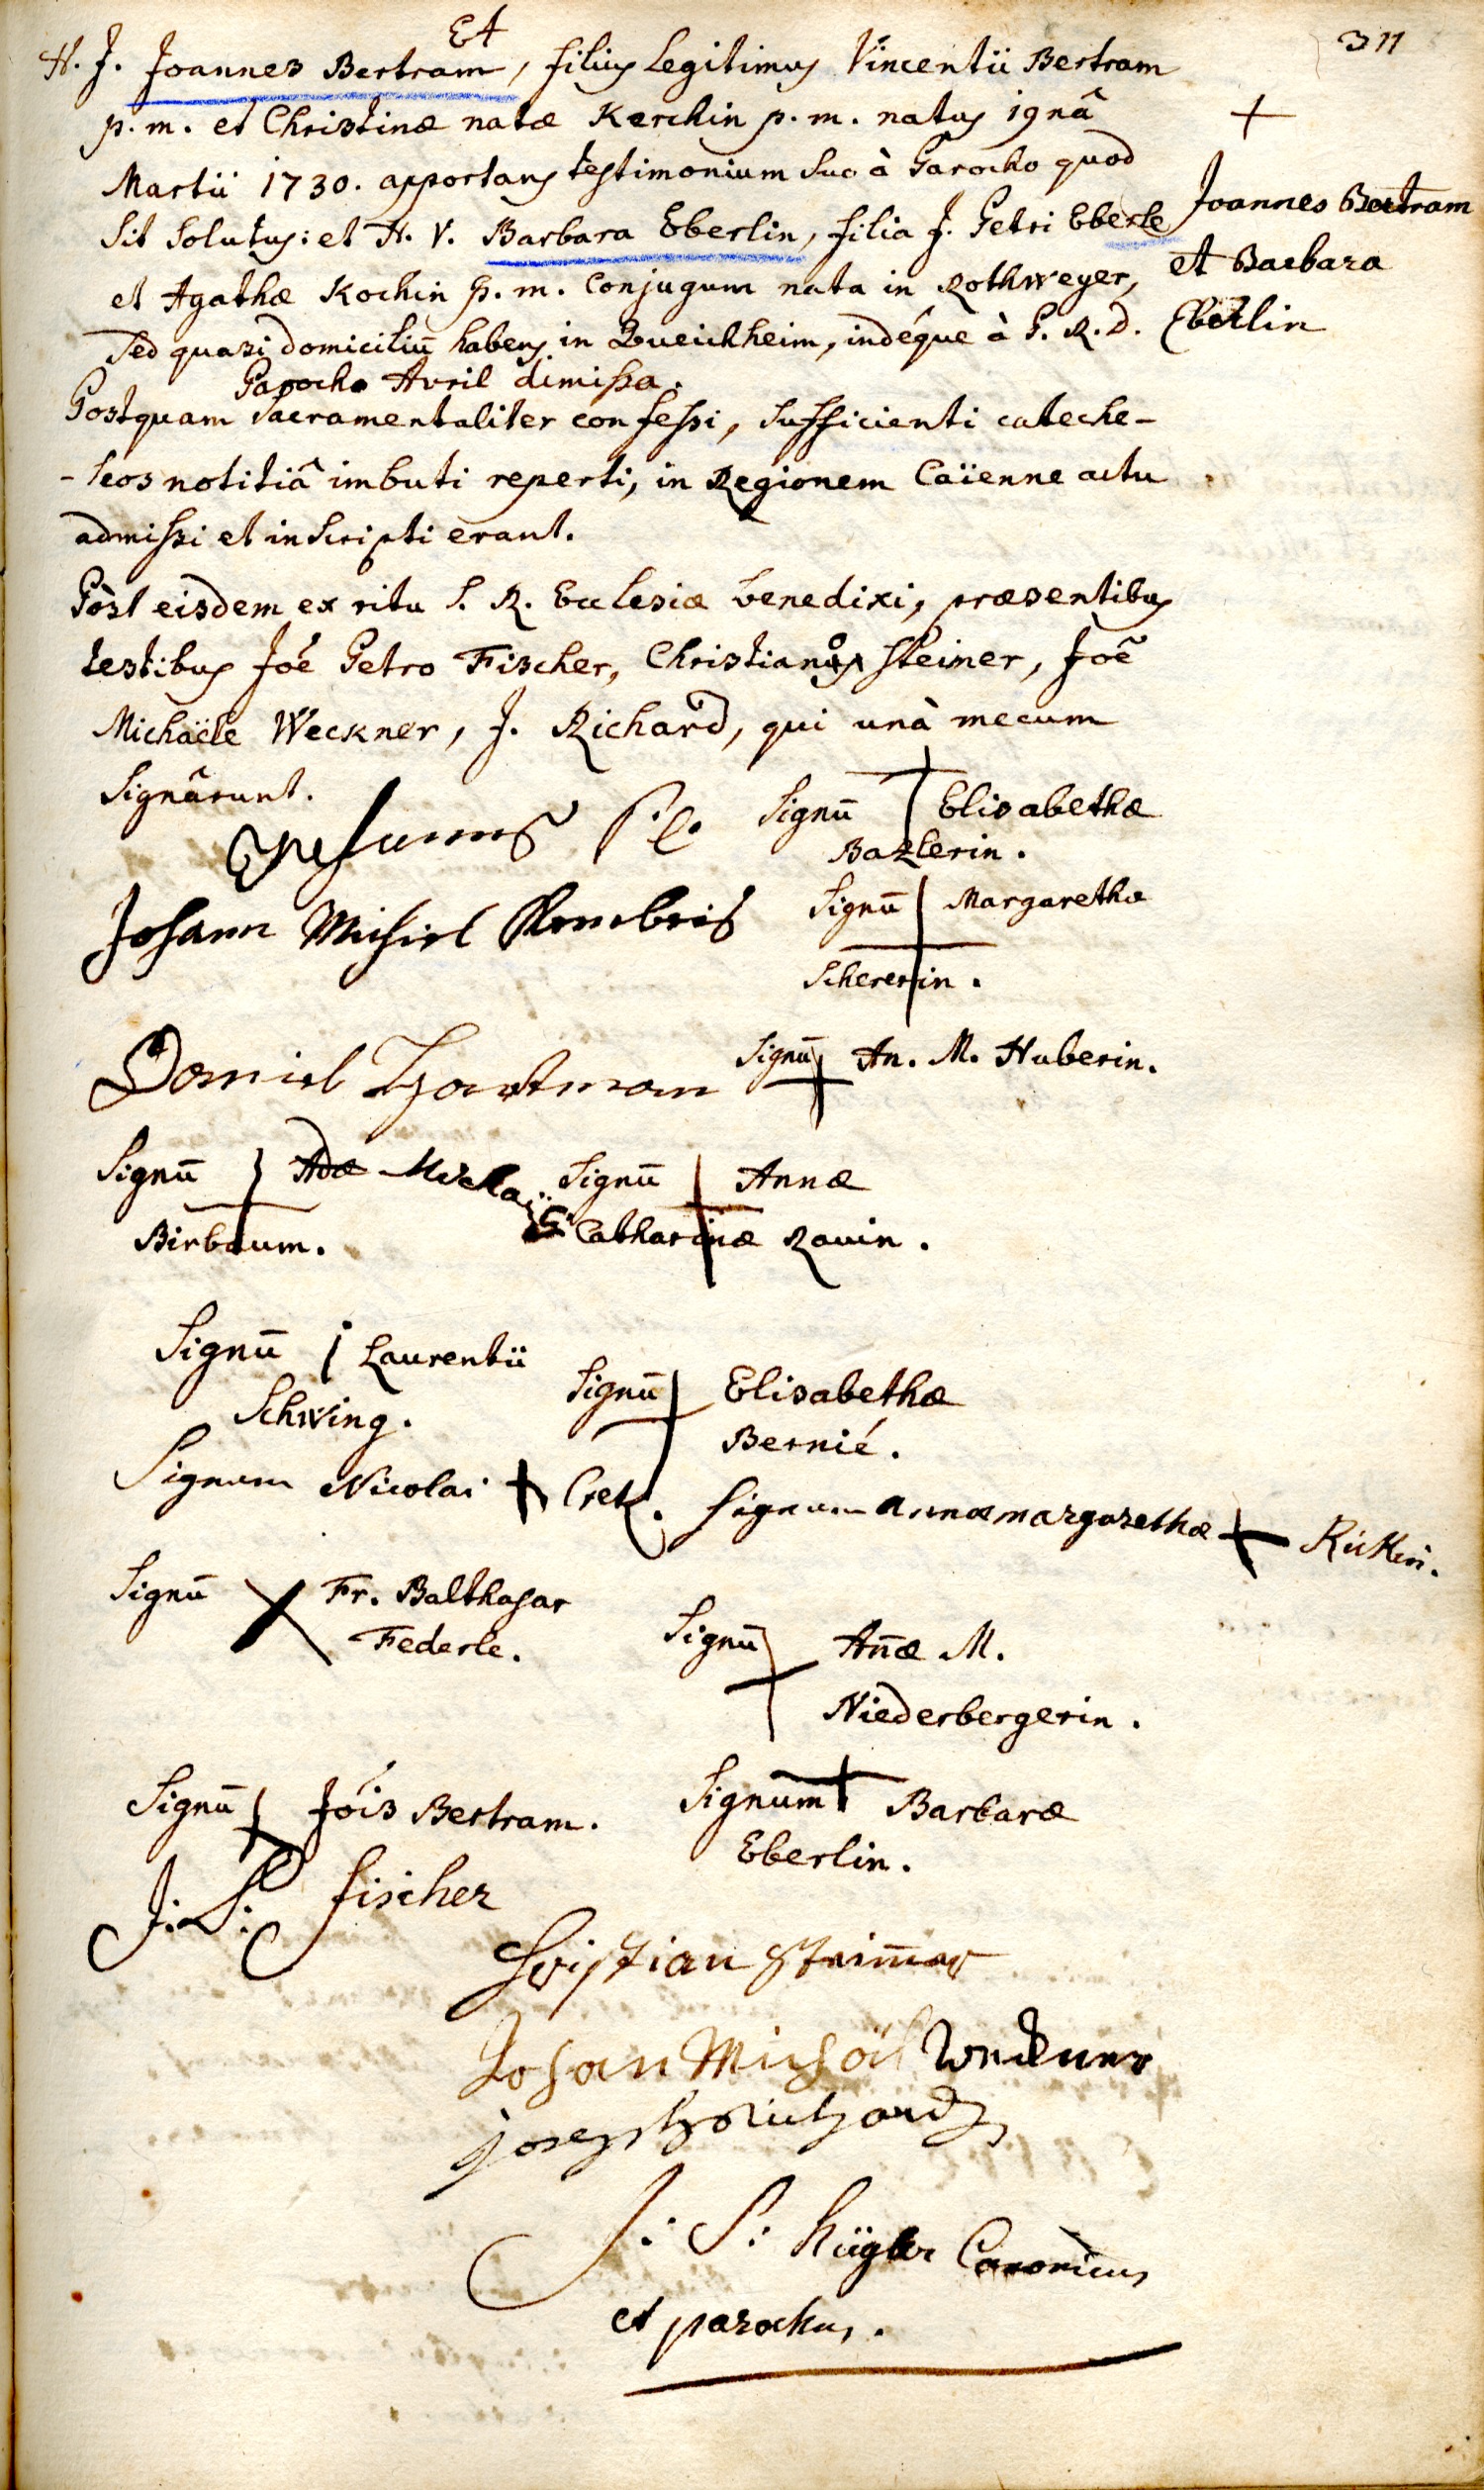 311
Et
H. J. Joannes Bertram, filius legitimus Vincentii Bertram
p. m. et Christinæ natæ Kerchin p. m. natus 19nâ
Martii 1730. apportans testimonium suo à Parocho quod
sit solutus: et H. V. Barbara Eberlin, filia J. Petri Eberle
et Agathæ Kochin p. m. Conjugum nata in Rothweyer,
sed quasi domiciliū habens in Queichheim, indéque à P. R. D.
Parocho Avril dimissa.
+
Joannes Bertram
et Barbara
Eberlin
Postquam sacramentaliter confessi, sufficienti cateche-
-seos notitiâ imbuti reperti, in Regionem Caïenne actu
admissi et inscripti erant.
Pòst eisdem ex ritu S. R. Ecclesiæ benedixi, præsentibus
testibus Joé Petro Fischer, Christiano Steiner, Joē
Michaële Weckner, J. Richard, qui unà mecum
signârunt.
Signū Elisabethæ
Bazlerin.
Johann Michel
Signū Margarethæ
Schererin.
Daniel Hartman
Signū An. M. Huberin.
Signū Adæ Nickolai
Birbaum.
Signū Annæ
Catharinæ Rauin.
Signū Laurentii
Schwing.
Signū Elisabethæ
Bernié.
Signum Nicolai + Cretz. Signum annæ margarethæ +
Signū Fr. Balthasar
Federle.
Signū Añæ M.
Niederbergerin.
Signū Jóis Bertram.
Signum Barbaræ
Eberlin.
J: P: fischer
Christian Steiner
Johan Michäl Weckner
joseph richard
J: P: Kügler Canonicus
et parochus.